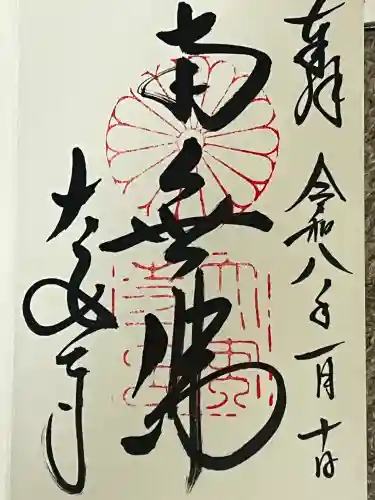 奉拝
令和八年一月十日
南無佛
大安寺